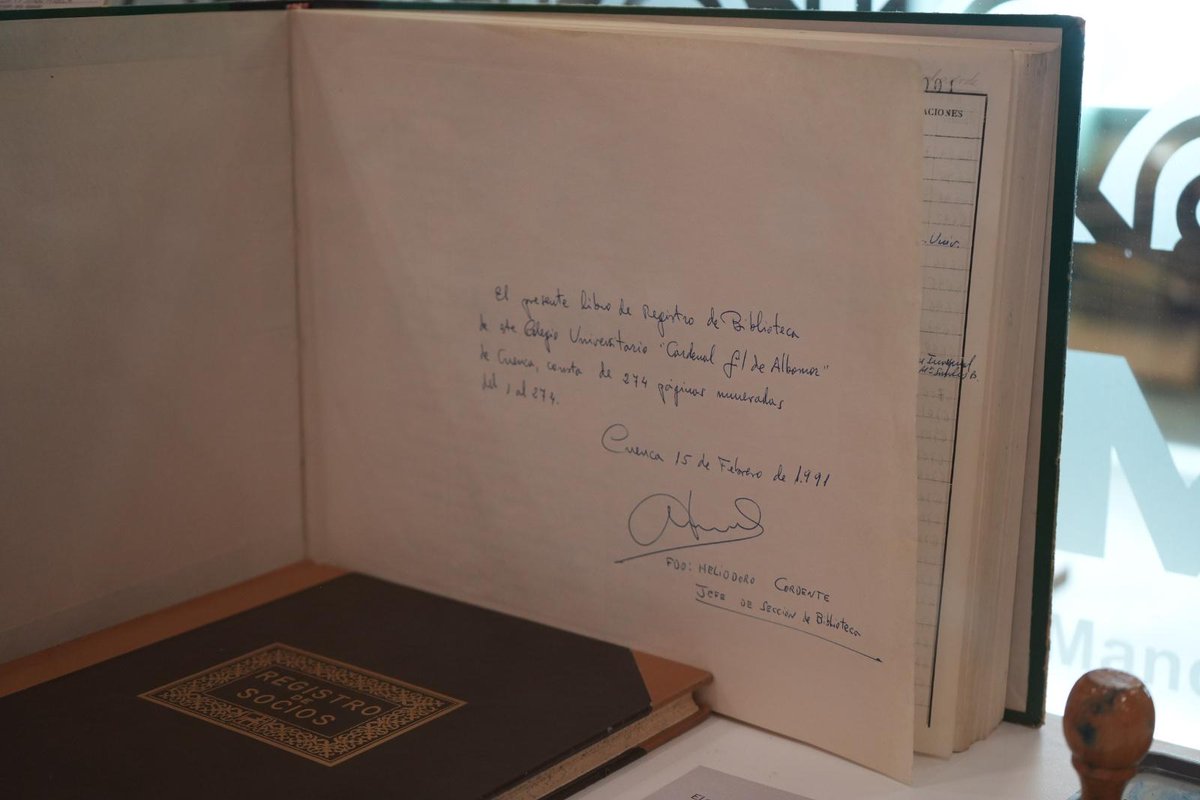 El presente libro de Registro de Biblioteca
de este Colegio Universitario "Cardenal Gil de Albornoz"
de Cuenca, consta de 274 páginas numeradas
del 1 al 274.
Cuenca 15 de Febrero de 1.991
FDO: HELIODORO CORDENTE
JEFE DE SECCIÓN de Biblioteca
ACIONES
Univ.
REGISTRO
DE
SOCIOS
Manc